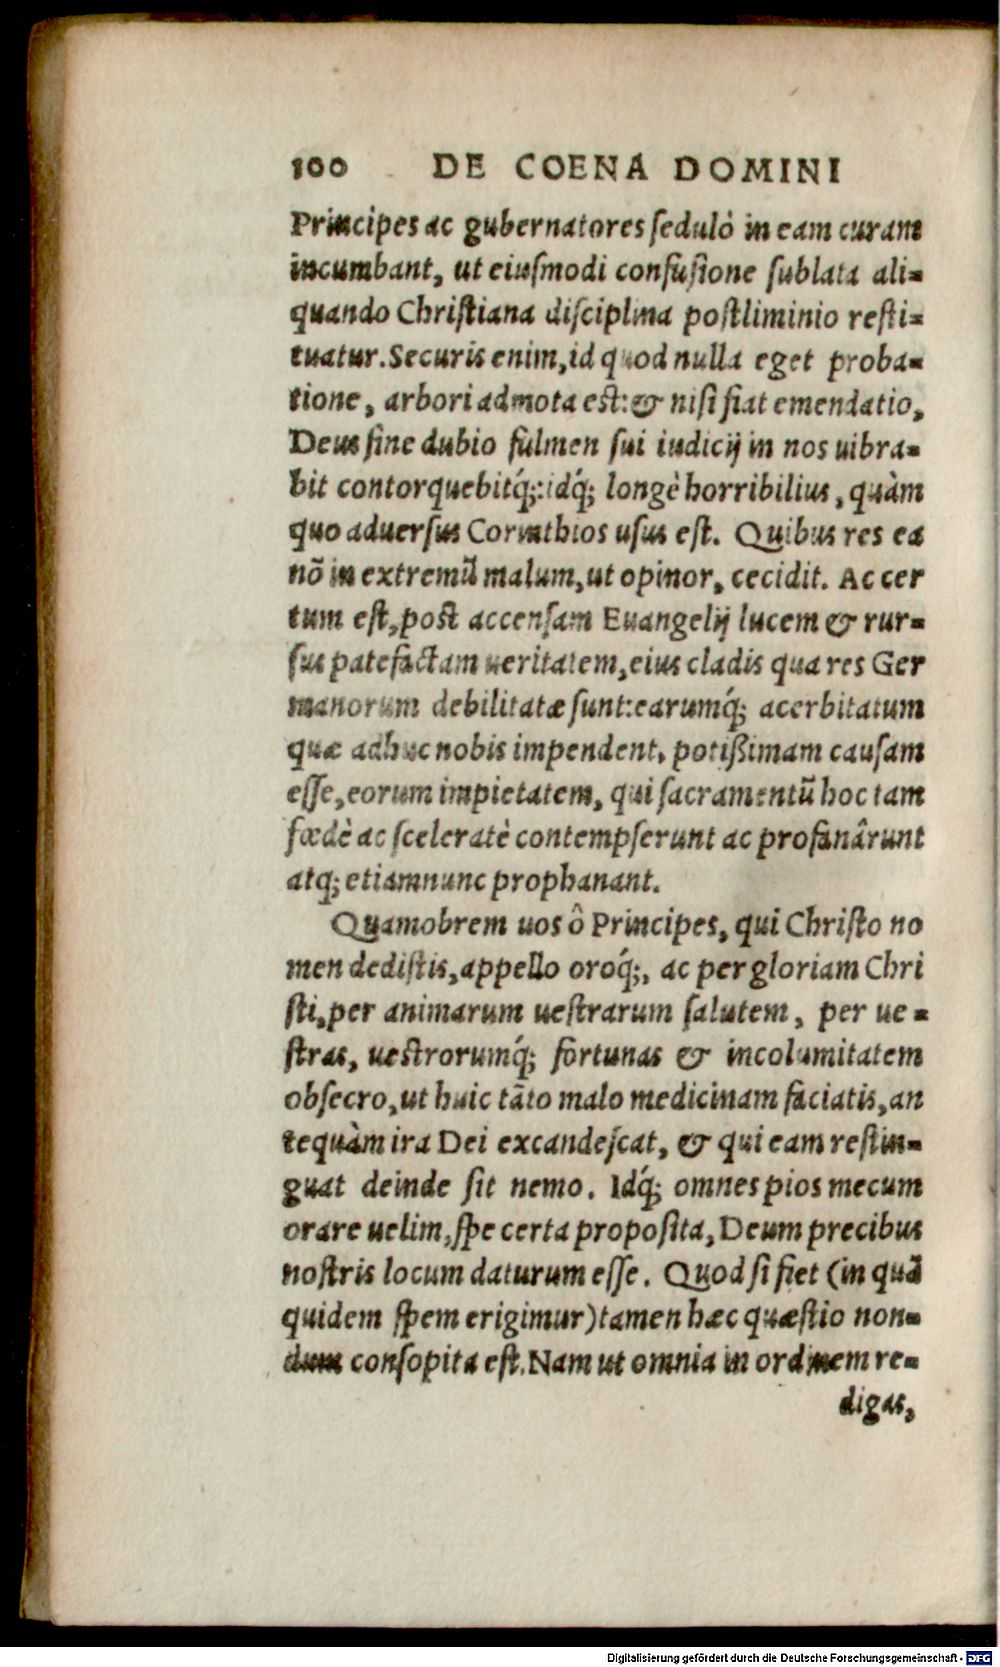 100 DE COENA DOMINI
Principes ac gubernatores ſedulò in eam curam
incumbant, ut eiuſmodi confuſione ſublata ali-
quando Chriſtiana diſciplina poſtliminio reſti-
tuatur. Securis enim, id quod nulla eget proba-
tione, arbori admota eſt: & niſi fiat emendatio,
Deus ſine dubio fulmen ſui iudicij in nos uibra-
bit contorquebitq́;: idq́; longè horribilius, quàm
quo aduerſus Corinthios uſus eſt. Quibus res ea
nō in extremū malum, ut opinor, cecidit. Ac cer
tum eſt, poſt accenſam Euangelij lucem & rur-
ſus patefactam ueritatem, eius cladis qua res Ger
manorum debilitatæ ſunt: earumq́; acerbitatum
quæ adhuc nobis impendent, potißimam cauſam
eſſe, eorum impietatem, qui ſacramentū hoc tam
fœdè ac ſceleratè contempſerunt ac profanârunt
atq; etiamnunc prophanant.
Quamobrem uos ô Principes, qui Chriſto no
men dediſtis, appello oroq́;, ac per gloriam Chri
ſti, per animarum ueſtrarum ſalutem, per ue-
ſtras, ueſtrorumq́; fortunas & incolumitatem
obſecro, ut huic tāto malo medicinam faciatis, an
tequàm ira Dei excandeſcat, & qui eam reſtin-
guat deinde ſit nemo. Idq́; omnes pios mecum
orare uelim, ſpe certa propoſita, Deum precibus
noſtris locum daturum eſſe. Quod ſi fiet (in quā
quidem ſpem erigimur) tamen hæc quæſtio non-
dum conſopita eſt. Nam ut omnia in ordinem re-
digas,
Digitalisierung gefördert durch die Deutsche Forschungsgemeinschaft - DFG